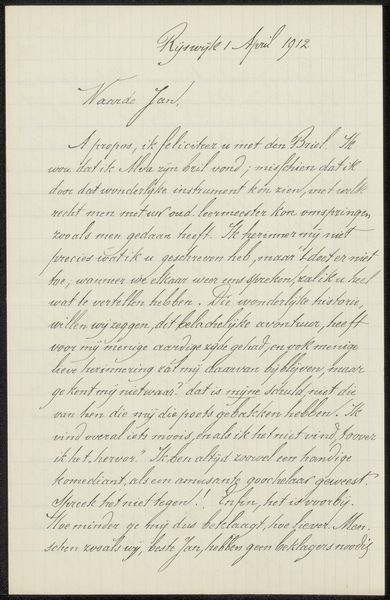 Rijswijk 1 April 1912
Waarde Jan,
A propos, ik feliciteer u met den Briel. Ik
wou dat ik Alva zijn bril vond; misschien dat ik
door dat wonderlijke instrument kon zien, met welk
recht men met uw oud-leermeester kon omspringen,
zooals men gedaan heeft. Ik herinner mij niet
precies wat ik u geschreven heb, maar 't doet er niet
toe; wanneer we elkaar weer eens spreken, zal ik u heel
wat te vertellen hebben. Die wonderlijke historie,
willen wij zeggen, dit belachelijke avontuur, heeft
voor mij menige aardige zijde gehad, en ook menige
lieve herinnering zal mij daarvan bijblijven, maar
ge kent mij nietwaar? dat is mijne schuld, niet die
van hen die mij die poets gebakken hebben. Ik
vind overal iets moois, en als ik het niet vind, "toover
ik het hervor." Ik ben altijd zoowel een handige
komediant, als een amusante goochelaar geweest.
Spreek het niet tegen!! Enfin, het is voorbij.
Hoe minder ge mij dus beklaagt, hoe liever. Men-
schen zooals wij, beste Jan, hebben geen beklagers noodig